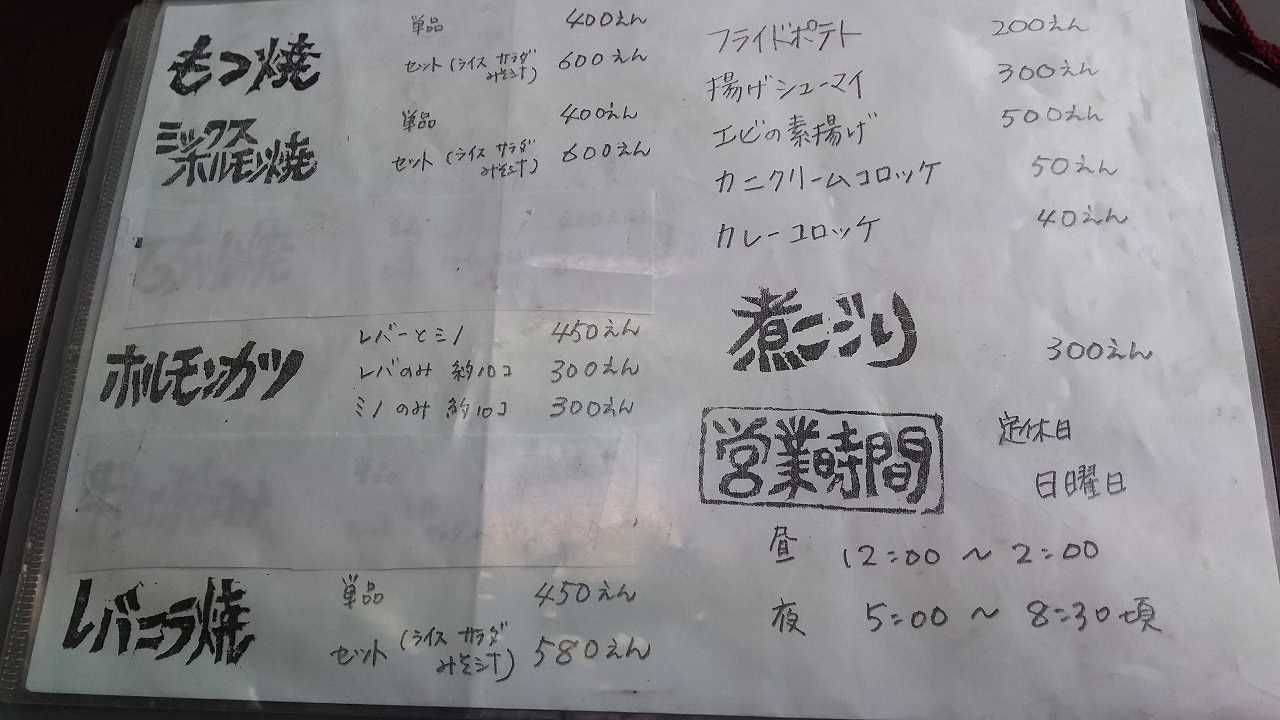 もつ焼
単品 400えん
セット(ライス サラダ みそ汁) 600えん
ミックスホルモン焼
単品 400えん
セット(ライス サラダ みそ汁) 600えん
ホルモンカツ
レバーとミノ 450えん
レバのみ 約10コ 300えん
ミノのみ 約10コ 300えん
レバニラ焼
単品 450えん
セット(ライス サラダ みそ汁) 580えん
フライドポテト 200えん
揚げシューマイ 300えん
エビの素揚げ 500えん
カニクリームコロッケ 50えん
カレーコロッケ 40えん
煮こごり 300えん
営業時間
定休日
日曜日
昼 12:00 〜 2:00
夜 5:00 〜 8:30頃